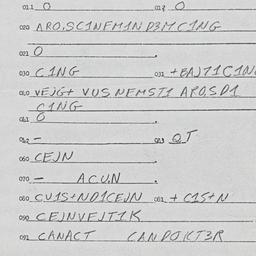 011 O 012 O
020 ARO.SC1NFM1N D3MC1NG
021 O
030 C1NG 031 +BAJ71C1N
040 VEJG+ VUS NFMST1 ARO.SD1
C1NG
041 O
042 — 043 OT
060 CEJN
070 — ACUN
080 CV1S+ND1CEJN 081 + C1S+N
090 CEJNVEJT1K
091 CANACT CANDOKT3R